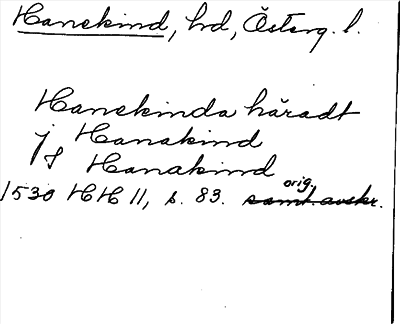 Hanekind, hd, Österg. l.
Hanekinda häradt
j Hanakind
ȷ Hanakind
orig.
1530 HH 11, s. 83. samt. avskr.